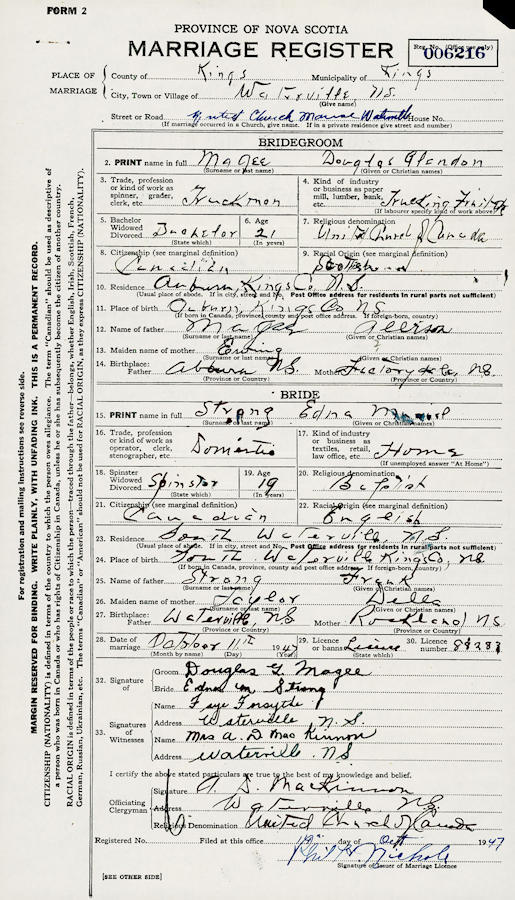 FORM 2
PROVINCE OF NOVA SCOTIA
MARRIAGE REGISTER
Reg. No. (Office use only)
006216
PLACE OF MARRIAGE
County of Kings Municipality of Kings
City, Town or Village of Waterville, N.S.
(Give name)
Street or Road United Church Manse Waterville House No.
(If marriage occurred in a Church, give name. If in a private residence give street and number)
BRIDEGROOM
2. PRINT name in full Magee Douglas Glendon
(Surname or last name) (Given or Christian names)
3. Trade, profession or kind of work as spinner, grader, clerk, etc. Truckman
4. Kind of industry or business as paper mill, lumber, bank, etc. Trucking Fruit
(If labourer specify kind of work above)
5. Bachelor Widowed Divorced Bachelor
(State which)
6. Age 21
(In years)
7. Religious denomination United Church of Canada
8. Citizenship (see marginal definition) Canadian
9. Racial Origin (see marginal definition)
10. Residence Auburn, Kings Co. N.S.
(Usual place of abode. If in city, street and No. Post Office address for residents in rural parts not sufficient)
11. Place of birth Auburn, Kings Co NS.
(If born in Canada, province, county and post office address. If foreign-born, country)
12. Name of father Magee
(Surname or last name) (Given or Christian names)
13. Maiden name of mother Ewing
(Surname or last name) (Given or Christian names)
14. Birthplace: Father Auburn NS. Mother Factorydale, NS.
(Province or Country) (Province or Country)
BRIDE
15. PRINT name in full Strong Edna
(Surname or last name) (Given or Christian names)
16. Trade, profession or kind of work as operator, clerk, stenographer, etc. Domestic
17. Kind of industry or business as textiles, retail, law office, etc. Home
(If unemployed answer "At Home")
18. Spinster Widowed Divorced Spinster
(State which)
19. Age 19
(In years)
20. Religious denomination Baptist
21. Citizenship (see marginal definition) Canadian
22. Racial Origin (see marginal definition) English
23. Residence South Waterville, N.S.
(Usual place of abode. If in city, street and No. Post Office address for residents in rural parts not sufficient)
24. Place of birth South Waterville Kings Co, NS.
(If born in Canada, province, county and post office address. If foreign-born, country)
25. Name of father Strong Frank
(Surname or last name) (Given or Christian names)
26. Maiden name of mother Taylor Della
(Surname or last name) (Given or Christian names)
27. Birthplace: Father Waterville, NS Mother Rockland N.S.
(Province or Country) (Province or Country)
28. Date of marriage October 11th 1947
(Month by name) (Day) (Year)
29. Licence or banns License
30. Licence No.
32. Signature of
Groom Douglas G. Magee
Bride Edna M Strong
33. Signatures of Witnesses
Name Faye Forsythe
Address Waterville N.S.
Name Mrs A. D. MacKinnon
Address Waterville. NS
I certify the above stated particulars are true to the best of my knowledge and belief.
Officiating Clergyman
Signature A. D. MacKinnon
Address Waterville NS.
Religious Denomination United Church of Canada
Registered No. Filed at this office day of Oct 1947
Signature of Issuer of Marriage Licence
[SEE OTHER SIDE]
For registration and mailing instructions see reverse side.
MARGIN RESERVED FOR BINDING. WRITE PLAINLY, WITH UNFADING INK. THIS IS A PERMANENT RECORD.
CITIZENSHIP (NATIONALITY) is defined in terms of the country to which the person owes allegiance. The term "Canadian" should be used as descriptive of
a person who was born in Canada or who has rights of Citizenship in Canada, unless he or she has subsequently become the citizen of another country.
RACIAL ORIGIN is defined in terms of the people or race to which the person—traced through the father—belongs, whether English, Irish, Scottish, French,
German, Russian, Ukrainian, etc. The terms "Canadian" or "American" should not be used for RACIAL ORIGIN, as they express CITIZENSHIP (NATIONALITY).